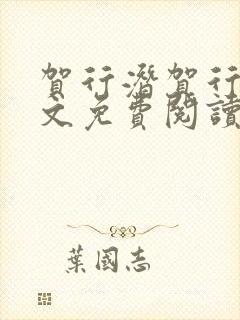 賀行潛賀行
文免費閱讀
葉國志